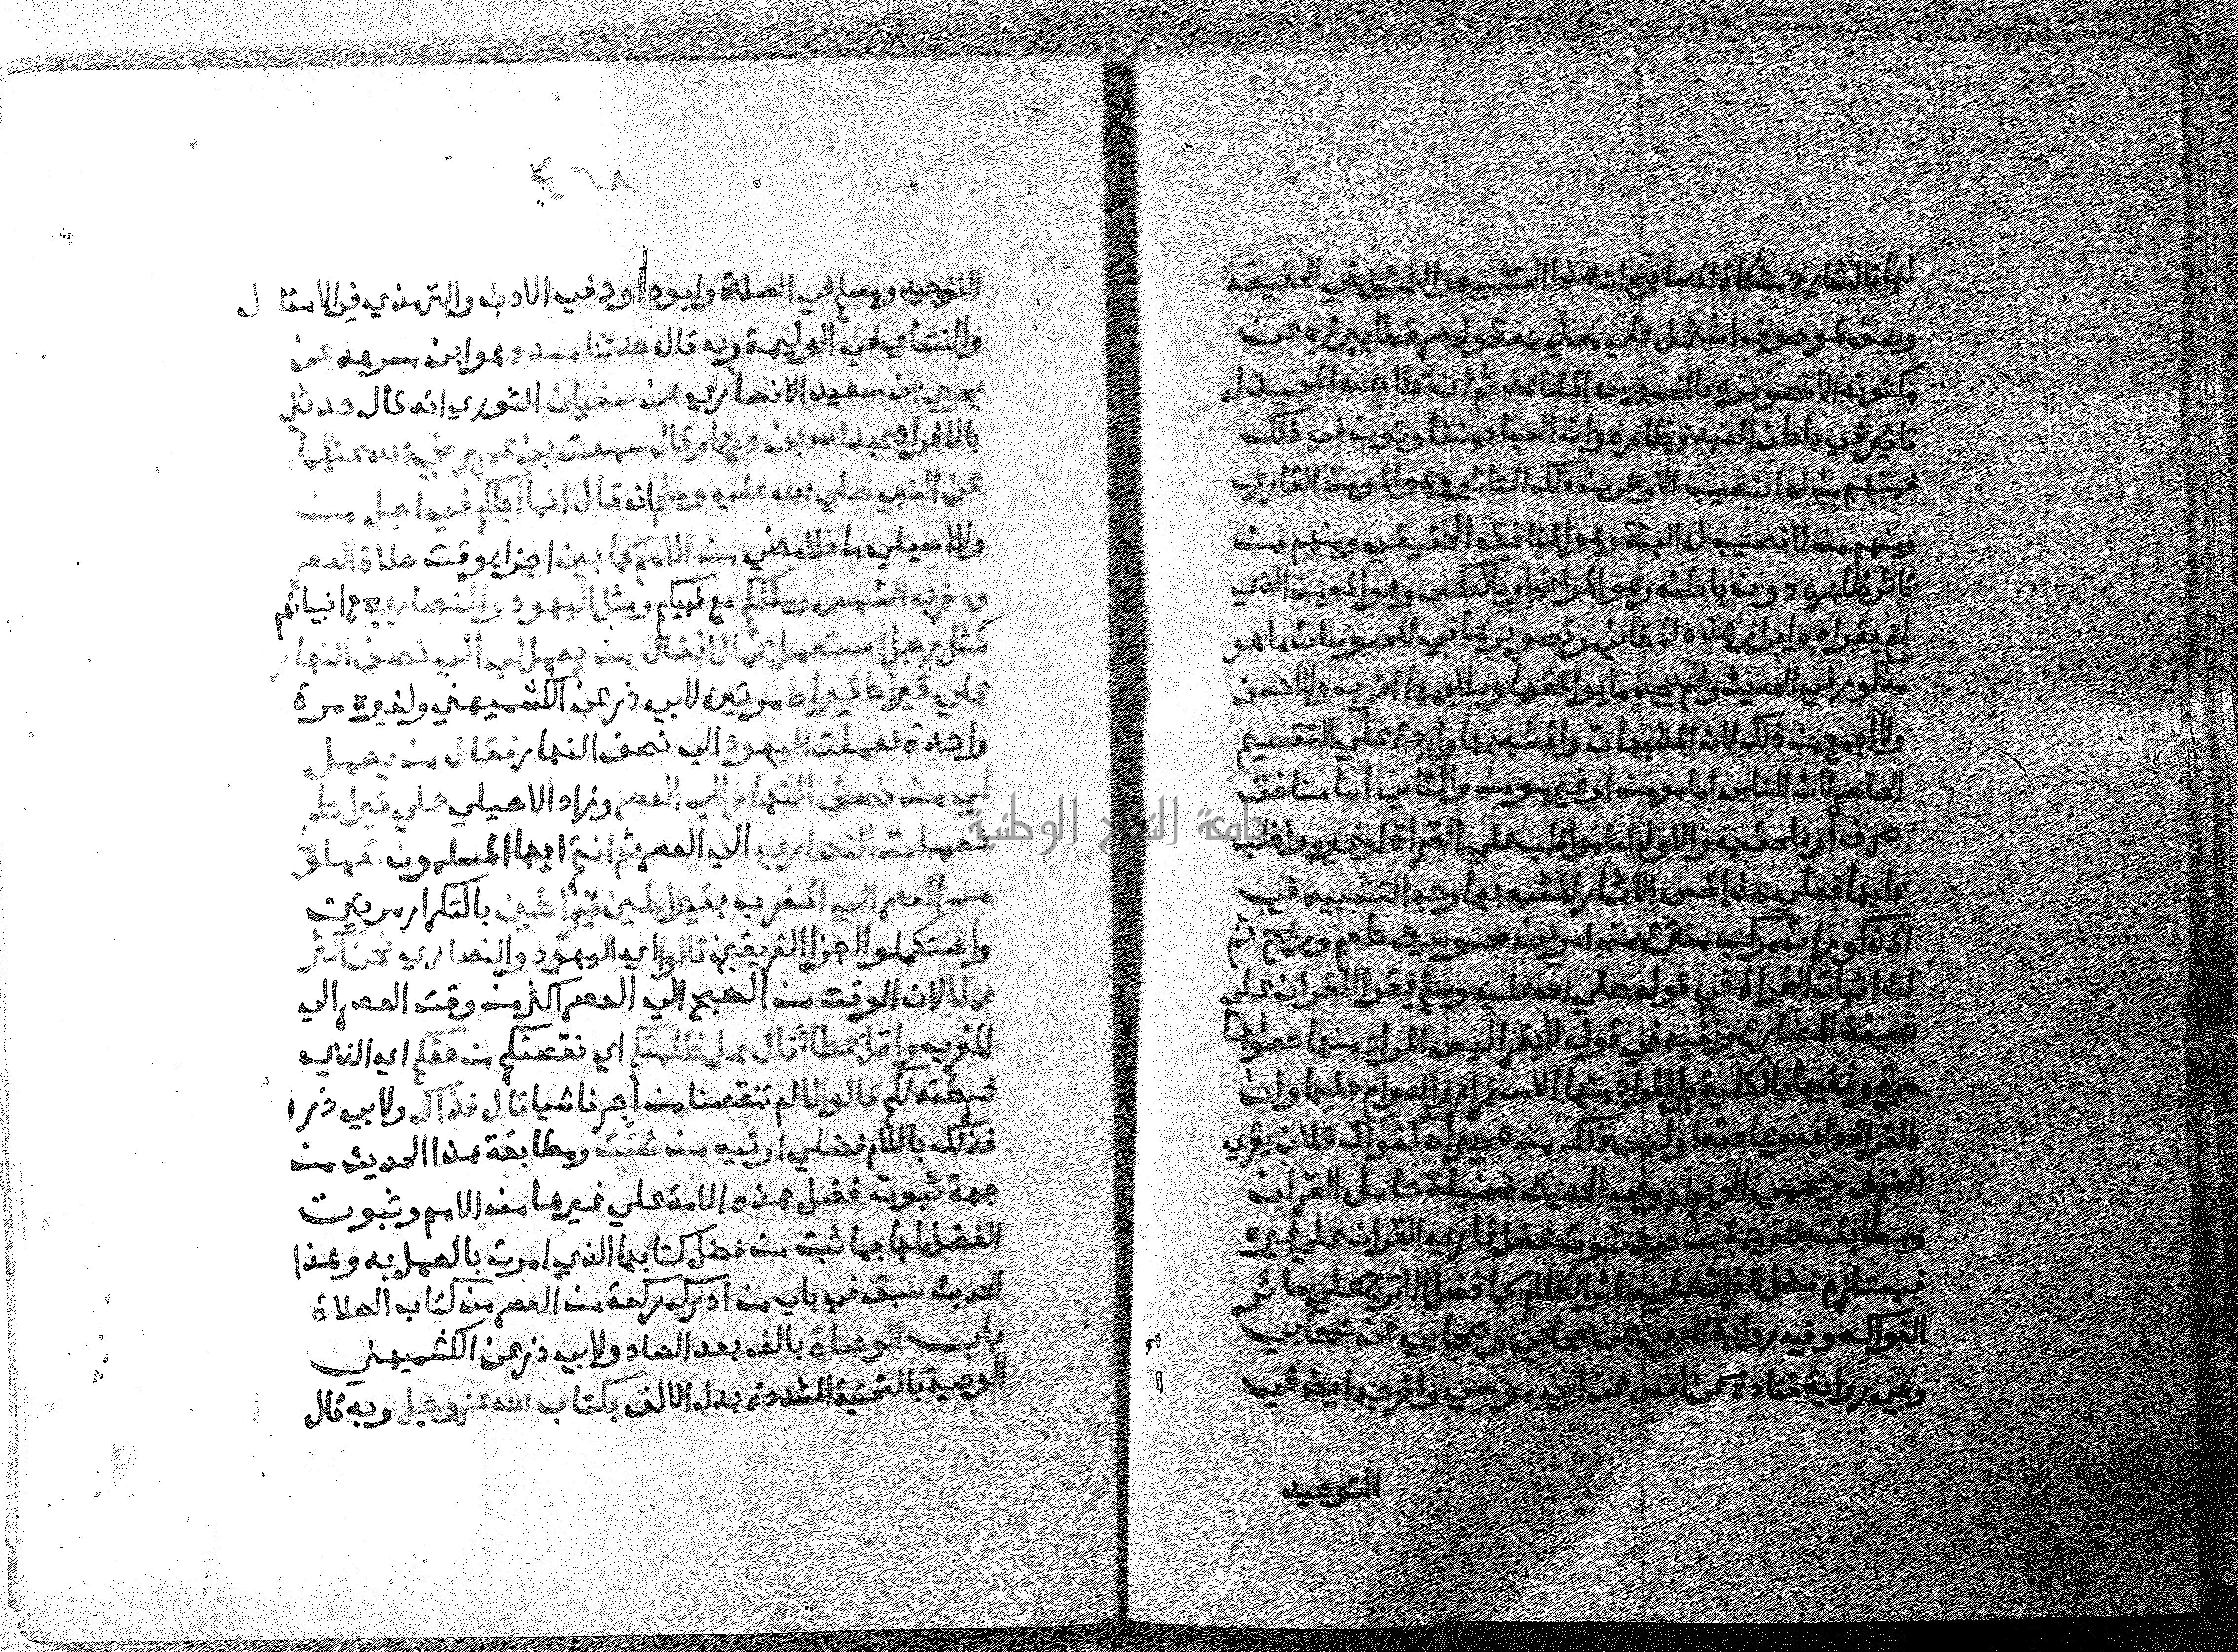 كما قال شارح مشكاة المصابيح ان هذا التشبيه والتمثيل في الحقيقة
وصف لموصوف اشتمل علي معني معقول صرف لا يبرزه عن
مكنونه الا تصويره بالمحسوس المشاهد ثم ان كلام الله المجيد له
تاثير في باطن العبد وظاهره وان العباد متفاوتون في ذلك
فمنهم من له النصيب الاوفر من ذلك التاثير وهو المومن القاري
ومنهم من لا نصيب له البتة وهو المنافق الحقيقي ومنهم من
تاثر ظاهره دون باطنه وهو المراي او بالعكس وهو المومن الذي
لم يقراه وابراز هذه المعاني وتصويرها في المحسوسات ما هو
مذكور في الحديث ولم يجد ما يوافقها ويلايمها اقرب ولا احسن
ولا اجمع من ذلك لان المشبهات والمشبه بها واردة علي التقسيم
الحاصر لان الناس اما مومن او غير مومن والثاني اما منافق
صرف او ملحق به والاول اما مواظب علي القراة او غير مواظب
عليها فعلي هذا قس الاثمار المشبه بها وجه التشبيه في
المذكورات مركب منتزع من امرين محسوسين طعم وريح ثم
ان اثبات القراة في قوله صلي الله عليه وسلم يقرا القران علي
صيغة المضارع ونفيه في قوله لا يقرا ليس المراد منها حصولها
مرة ونفيها بالكلية بل المراد منها الاستمرار والدوام عليها وان
القراة دابه وعادته او ليس ذلك من هجيراه كقولك فلان يقري
الضيف ويحمي الحريم اه وفي الحديث فضيلة حامل القران
ومطابقته للترجمة من حيث ثبوت فضل قاري القران علي غيره
فيستلزم فضل القران علي سائر الكلام كما فضل الاترج علي سائر
الفواكه وفيه رواية تابعي عن صحابي وصحابي عن صحابي
وهي رواية قتادة عن انس عن ابي موسي واخرجه ايضا في
التوحيد
التوحيد ومسلم في الصلاة وابو داود في الادب والترمذي في الامثال
والنساي في الوليمة وبه قال حدثنا مسدد هو ابن مسرهد عن
يحيي بن سعيد الانصاري عن سفيان الثوري انه قال حدثني
بالافراد عبد الله بن دينار قال سمعت بن عمر رضي الله عنهما
عن النبي صلي الله عليه وسلم انه قال انما اجلكم في اجل من
وللاصيلي ما خلا مضي من الامم كما بين اجزا وقت صلاة العصر
ومغرب الشمس ومثلكم مع نبيكم ومثل اليهود والنصاري مع انبيائهم
كمثل رجل استعمل عمالا فقال من يعمل لي الي نصف النهار
علي قيراط قيراط مرتين لابي ذر عن الكشميهني ولغيره مرة
واحدة فعملت اليهود الي نصف النهار فقال من يعمل
لي من نصف النهار الي العصر وزاد الاصيلي علي قيراط
فعملت النصاري الي العصر ثم انتم ايها المسلمون تعملون
من العصر الي المغرب بقيراطين قيراطين بالتكرار مرتين
واستكملوا اجر الفريقين قالوا اي اليهود والنصاري نحن اكثر
عملا لان الوقت من الصبح الي العصر اكثر من وقت العصر الي
المغرب واقل عطا قال هل ظلمتكم اي نقصتكم من حقكم اي الذي
شرطته لكم قالوا لا لم تنقصنا من اجرنا شيا قال فذاك ولابي ذر
فذلك باللام فضلي اوتيه من شئت ومطابقة هذا الحديث من
جهة ثبوت فضل هذه الامة علي غيرها من الامم وثبوت
الفضل لها بما ثبت من فضل كتابها الذي امرت بالعمل به وهذا
الحديث سبق في باب من ادرك ركعة من العصر من كتاب الصلاة
باب الوصاة بالف بعد الصاد ولابي ذر عن الكشميهني
الوصية بالتحتية المشددة بدل الالف بكتاب الله عز وجل وبه قال
جامعة النجاح الوطنية